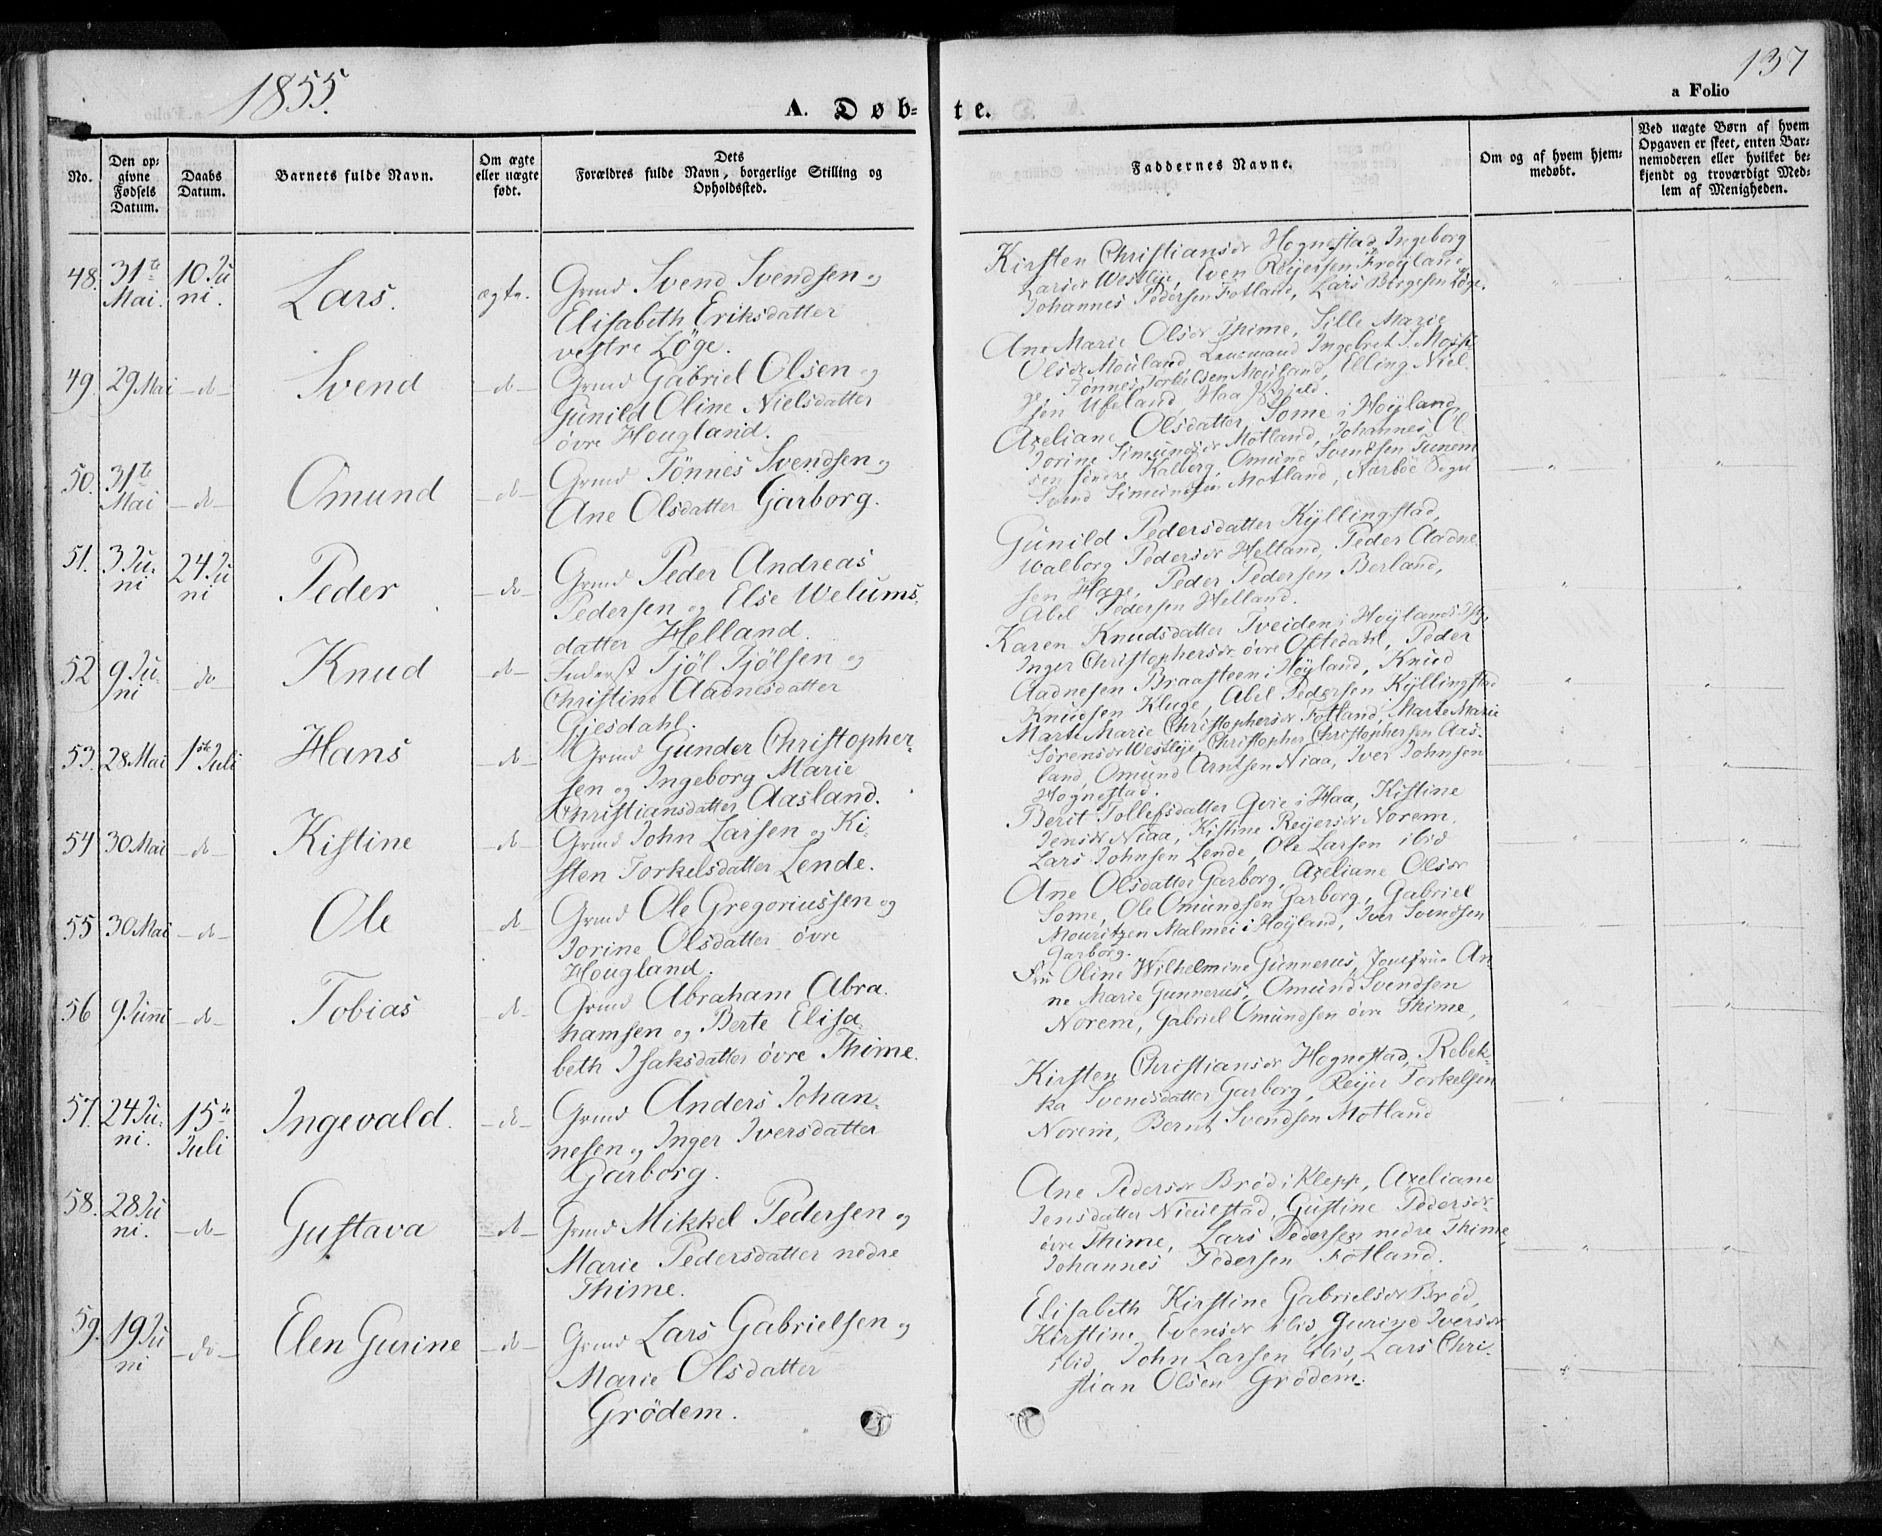 1855.
137
a Folio
A. Døb-
te.
No.
Den op-
givne
Fødsels
Datum.
Daabs
Datum.
Barnets fulde Navn.
Om ægte
eller uægte
født.
Dets
Forældres fulde Navn, borgerlige Stilling og
Opholdssted.
Faddernes Navne.
Om og af hvem hjem-
medøbt.
Ved uægte Børn af hvem
Opgaven er skeet, enten Bar-
nemoderen eller hvilket be-
kjendt og troværdigt Med-
lem af Menigheden.
48. 31te Mai. 10 Ju
ni.
Lars.
ægte.
Grmd Svend Svendsen og
Elisabeth Eriksdatter
vestre Löge.
Kirsten Christiansdr Hognestad, Ingeborg
Larsdr Westlye, Even Reijersen Fröyland
Johannes Pedersen Fotland, Lars Börgesen Löge.
49. 29 Mai -do-
Svend
-do-
Grmd Gabriel Olsen og
Gunild Oline Nielsdatter
övre Hougland.
Ane Marie Olsdr Thime, Sille Marie
Olsdr Mouland, Lensmand Ingebret S. Mossi
ge, Tönnes Torkildsen Mouland, Elling Niel-
sen Ufsland, Haa Pgjeld.
50. 31te
Mai -do-
Omund
-do-
Grmd Tönnes Svendsen og
Ane Olsdatter Garborg.
Axeliane Olsdatter Some i Höyland,
Jorine Simunsdr Motland, Johannes Ol
sen söndre Kalberg, Omund Svendsen Tunem
Svend Simundsen Motland, Nærböe Sogn
51. 3 Ju-
ni 24 Ju
ni
Peder
-do-
Grmd Peder Andreas
Pedersen og Else Welums-
datter Helland.
Gunild Pedersdatter Kyllingstad,
Walborg Pedersdr Helland, Peder Aadne-
sen Hage, Peder Pedersen Berland,
Abel Pedersen Helland.
52 9 Ju-
ni -do
Knud
do-
Inderst Tjöl Tjölsen og
Christine Aadnesdatter
Gjesdahl.
Karen Knudsdatter Tveiden i Höylands Pg,
Inger Christophersdr övre Oftedahl, Peder
Aadnesen Braasteen i Höyland, Knud
Knudsen Kluge, Abel Pedersen Kyllingstad
53. 28 Mai 1ste Juli
Hans
-do-
Grmd Gunder Christopher-
sen og Ingeborg Marie
Christiansdatter Aasland.
Marte Marie Christophersdr Fotland, Marte Marie
Sörensdr Westlye, Christopher Christophersen Aas-
land, Omund Arntsen Niaa, Iver Johnsen
Hognestad.
54 30 Mai -do-
Kistine
-do
Grmd John Larsen og Ki-
sten Torkelsdatter Lende.
Berit Tollefsdatter Qvie i Haa, Kistine
Jensdr Niaa, Kistine Reijersdr Norem,
Lars Johnsen Lende, Ole Larsen ibid
55 30 Mai -do-
Ole
-do
Grmd Ole Gregoriussen og
Jorine Olsdatter övre
Hougland.
Ane Olsdatter Garborg, Axeliane Olsdr
Some, Ole Omundsen Garborg, Gabriel
Mouritzen Malmei i Höyland, Iver Svendsen
Garborg.
56 9 Juni -do-
Tobias
-do-
Grmd Abraham Abra-
hamsen og Berte Elisa-
beth Isaksdatter övre Thime.
Fru Oline Wilhelmine Gunnerus, Jomfrue An-
ne Marie Gunnerus, Omund Svendsen
Norem, Gabriel Omundsen övre Thime,
57. 24 Ju-
ni. 15de
Juli
Ingevald.
-do-
Grmd Anders Johan-
nesen og Inger Iversdatter
Garborg.
Kirsten Christiansdr Hognestad, Rebek-
ka Svendsdatter Garborg, Reijer Torkelsen
Norem, Bernt Svendsen Motland
58. 28 Ju
ni. -do-
Gustava
-do
Grmd Mikkel Pedersen og
Marie Pedersdatter nedre
Thime.
Ane Pedersdr Bröd i Klepp, Axeliane
Jensdatter Njeulstad, Gustine Pedersdr-
övre Thime, Lars Pedersen nedre Thime,
Johannes Pedersen Fotland.
59. 19 Ju
ni -do-
Elen Gurine
-do-
Grmd Lars Gabrielsen og
Marie Olsdatter
Grödem.
Elisabeth Kirstine Gabrielsdr Bröd,
Kirstine Evensdr ibid, Gurind Iversdr
ibid, John Larsen ibid, Lars Chri-
stian Olsen Grödem.